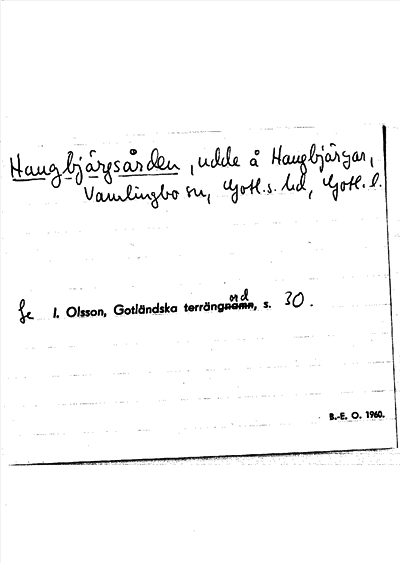 Haugbjärgsården, udde å Haugbjärgar,
Vamlingbo sn, Gotl.s. hd, Gotl. l.
Se I. Olsson, Gotländska terrängnamnord, s. 30.
B.-E. O. 1960.